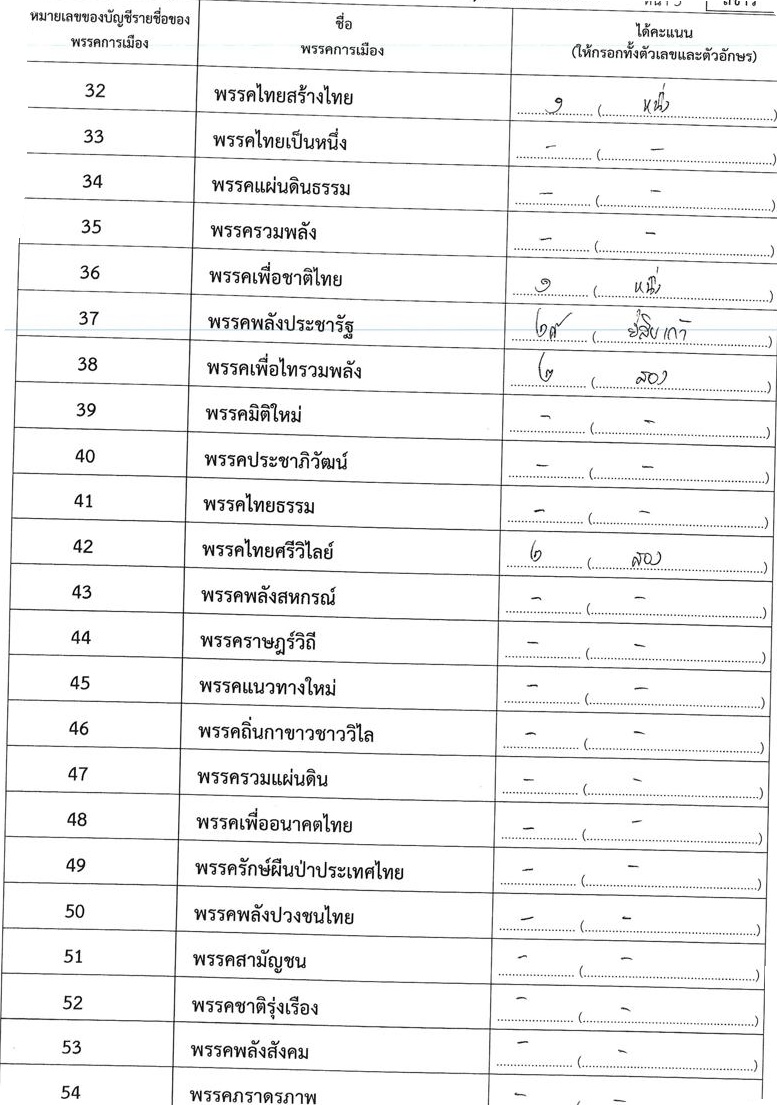 หมายเลขของบัญชีรายชื่อของ
พรรคการเมือง
ชื่อ
พรรคการเมือง
ได้คะแนน
(ให้กรอกทั้งตัวเลขและตัวอักษร)
32 พรรคไทยสร้างไทย ๑ (หนึ่ง)
33 พรรคไทยเป็นหนึ่ง - (-)
34 พรรคแผ่นดินธรรม - (-)
35 พรรครวมพลัง - (-)
36 พรรคเพื่อชาติไทย ๑ (หนึ่ง)
37 พรรคพลังประชารัฐ ๒๙ (ยี่สิบเก้า)
38 พรรคเพื่อไทรวมพลัง ๒ (สอง)
39 พรรคมิติใหม่ - (-)
40 พรรคประชาภิวัฒน์ - (-)
41 พรรคไทยธรรม - (-)
42 พรรคไทยศรีวิไลย์ ๒ (สอง)
43 พรรคพลังสหกรณ์ - (-)
44 พรรคราษฎร์วิถี - (-)
45 พรรคแนวทางใหม่ - (-)
46 พรรคถิ่นกาขาวชาววิไล - (-)
47 พรรครวมแผ่นดิน - (-)
48 พรรคเพื่ออนาคตไทย - (-)
49 พรรครักษ์ผืนป่าประเทศไทย - (-)
50 พรรคพลังปวงชนไทย - (-)
51 พรรคสามัญชน - (-)
52 พรรคชาติรุ่งเรือง - (-)
53 พรรคพลังสังคม - (-)
54 พรรคภราดรภาพ - (-